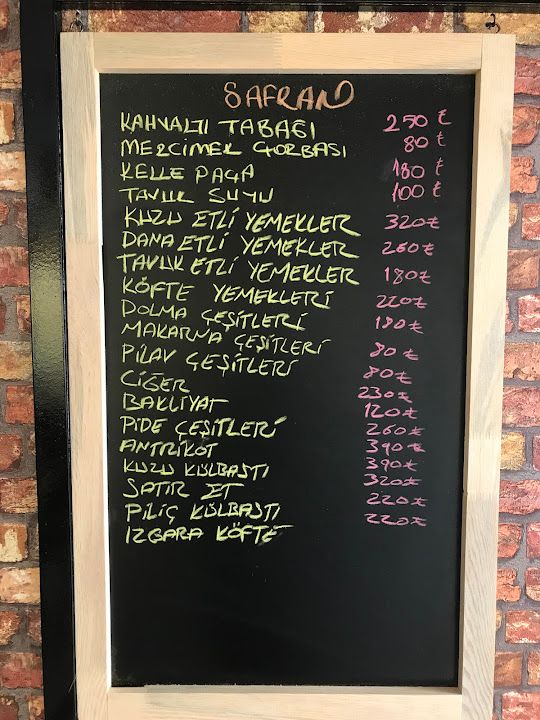 SAFRAN
KAHVALTI TABAĞI 250 ₺
MERCİMEK ÇORBASI 80 ₺
KELLE PAÇA 180 ₺
TAVUK SUYU 100 ₺
KUZU ETLİ YEMEKLER 320 ₺
DANA ETLİ YEMEKLER 260 ₺
TAVUK ETLİ YEMEKLER 180 ₺
KÖFTE YEMEKLERİ 220 ₺
DOLMA ÇEŞİTLERİ 180 ₺
MAKARNA ÇEŞİTLERİ 80 ₺
PİLAV ÇEŞİTLERİ 80 ₺
CİĞER 230 ₺
BAKLİYAT 120 ₺
PİDE ÇEŞİTLERİ 260 ₺
ANTRİKOT 390 ₺
KUZU KÜLBASTI 390 ₺
SATIR ET 320 ₺
PİLİÇ KÜLBASTI 220 ₺
IZGARA KÖFTE 220 ₺